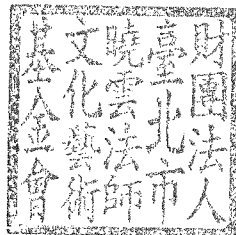 財團法人
臺北市
曉雲法師
文化藝術
基金會